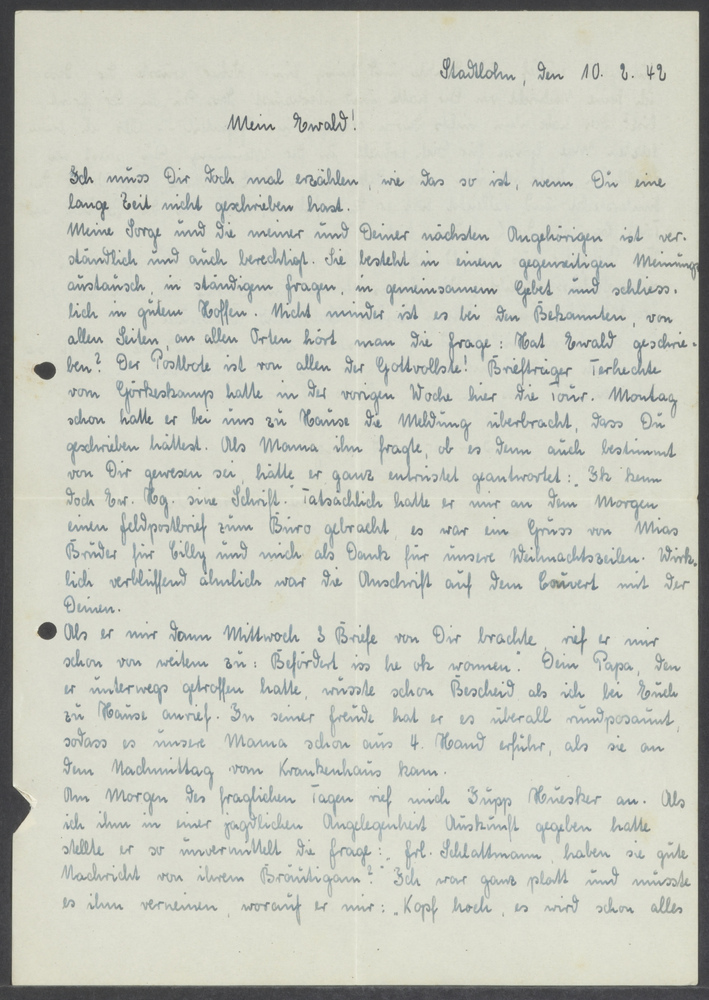 Stadtlohn, den 10. 2. 42
Mein Ewald!
Ich muss Dir doch mal erzählen, wie das so ist, wenn Du eine
lange Zeit nicht geschrieben hast.
Meine Sorge und die meiner und Deiner nächsten Angehörigen ist ver-
ständlich und auch berechtigt. Sie besteht in einem gegenseitigen Meinungs
austausch, in ständigem fragen, in gemeinsamem Gebet und schliess-
lich in gutem Hoffen. Nicht minder ist es bei den Bekannten, von
allen Seiten, an allen Orten hört man die Frage: Hat Ewald geschrie-
ben? Der Postbote ist von allen der Gottvollste! Briefträger Terhechte
vom Görkeskamp hatte in der vorigen Woche hier die Tour. Montag
schon hatte er bei uns zu Hause die Meldung überbracht, dass Du
geschrieben hättest. Als Mama ihn fragte, ob es denn auch bestimmt
von Dir gewesen sei, hätte er ganz entrüstet geantwortet: „Ik kenn
doch Ew. Hg. sine Schrift. Tatsächlich hatte er mir an dem Morgen
einen Feldpostbrief zum Büro gebracht, es war ein Gruss von Mias
Bruder für Cilly und mich als Dank für unsere Weihnachtszeilen. Wirk-
lich verblüffend ähnlich war die Anschrift auf dem Couvert mit der
Deinen.
Als er mir dann Mittwoch 3 Briefe von Dir brachte, rief er mir
schon von weitem zu: Befördert iss he ok wonnen". Dein Papa, den
er unterwegs getroffen hatte, wusste schon Bescheid als ich bei Euch
zu Hause anrief. In seiner Freude hat er es überall rundposaunt,
sodass es unsere Mama schon aus 4. Hand erfuhr, als sie an
dem Nachmittag vom Krankenhaus kam.
Am Morgen des fraglichen Tagen rief mich Jupp Huesker an. Als
ich ihm in einer jagdlichen Angelegenheit Auskunft gegeben hatte
stellte er so unvermittelt die Frage: „Frl. Schlattmann, haben sie gute
Nachricht von ihrem Bräutigam?" Ich war ganz platt und musste
es ihm verneinen, worauf er mir: „Kopf hoch, es wird schon alles